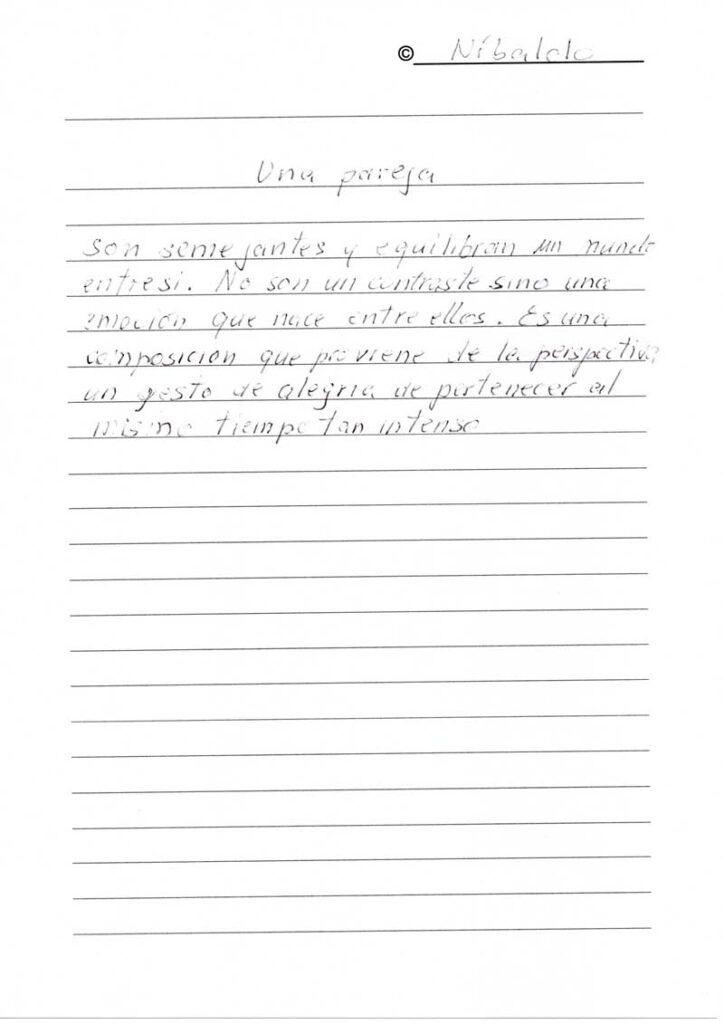 © Níbaldo
Una pareja
son semejantes y equilibran un mundo
entresi. No son un contraste sino una
emoción que nace entre ellos. Es una
composición que proviene de la perspectiva
un gesto de alegria de pertenecer al
mismo tiempo tan intenso